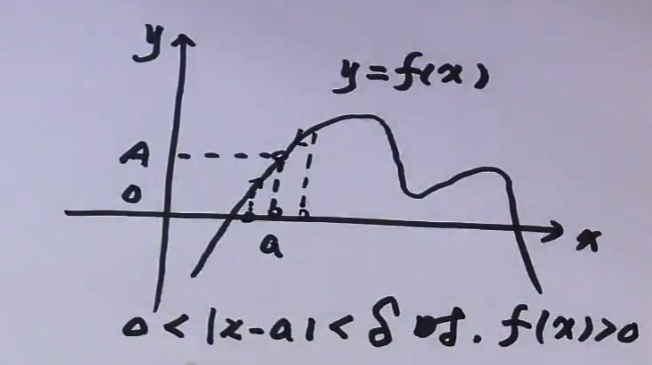 y
y=f(x)
A
0
a
x
0<|x-a|<δ 时. f(x)>0